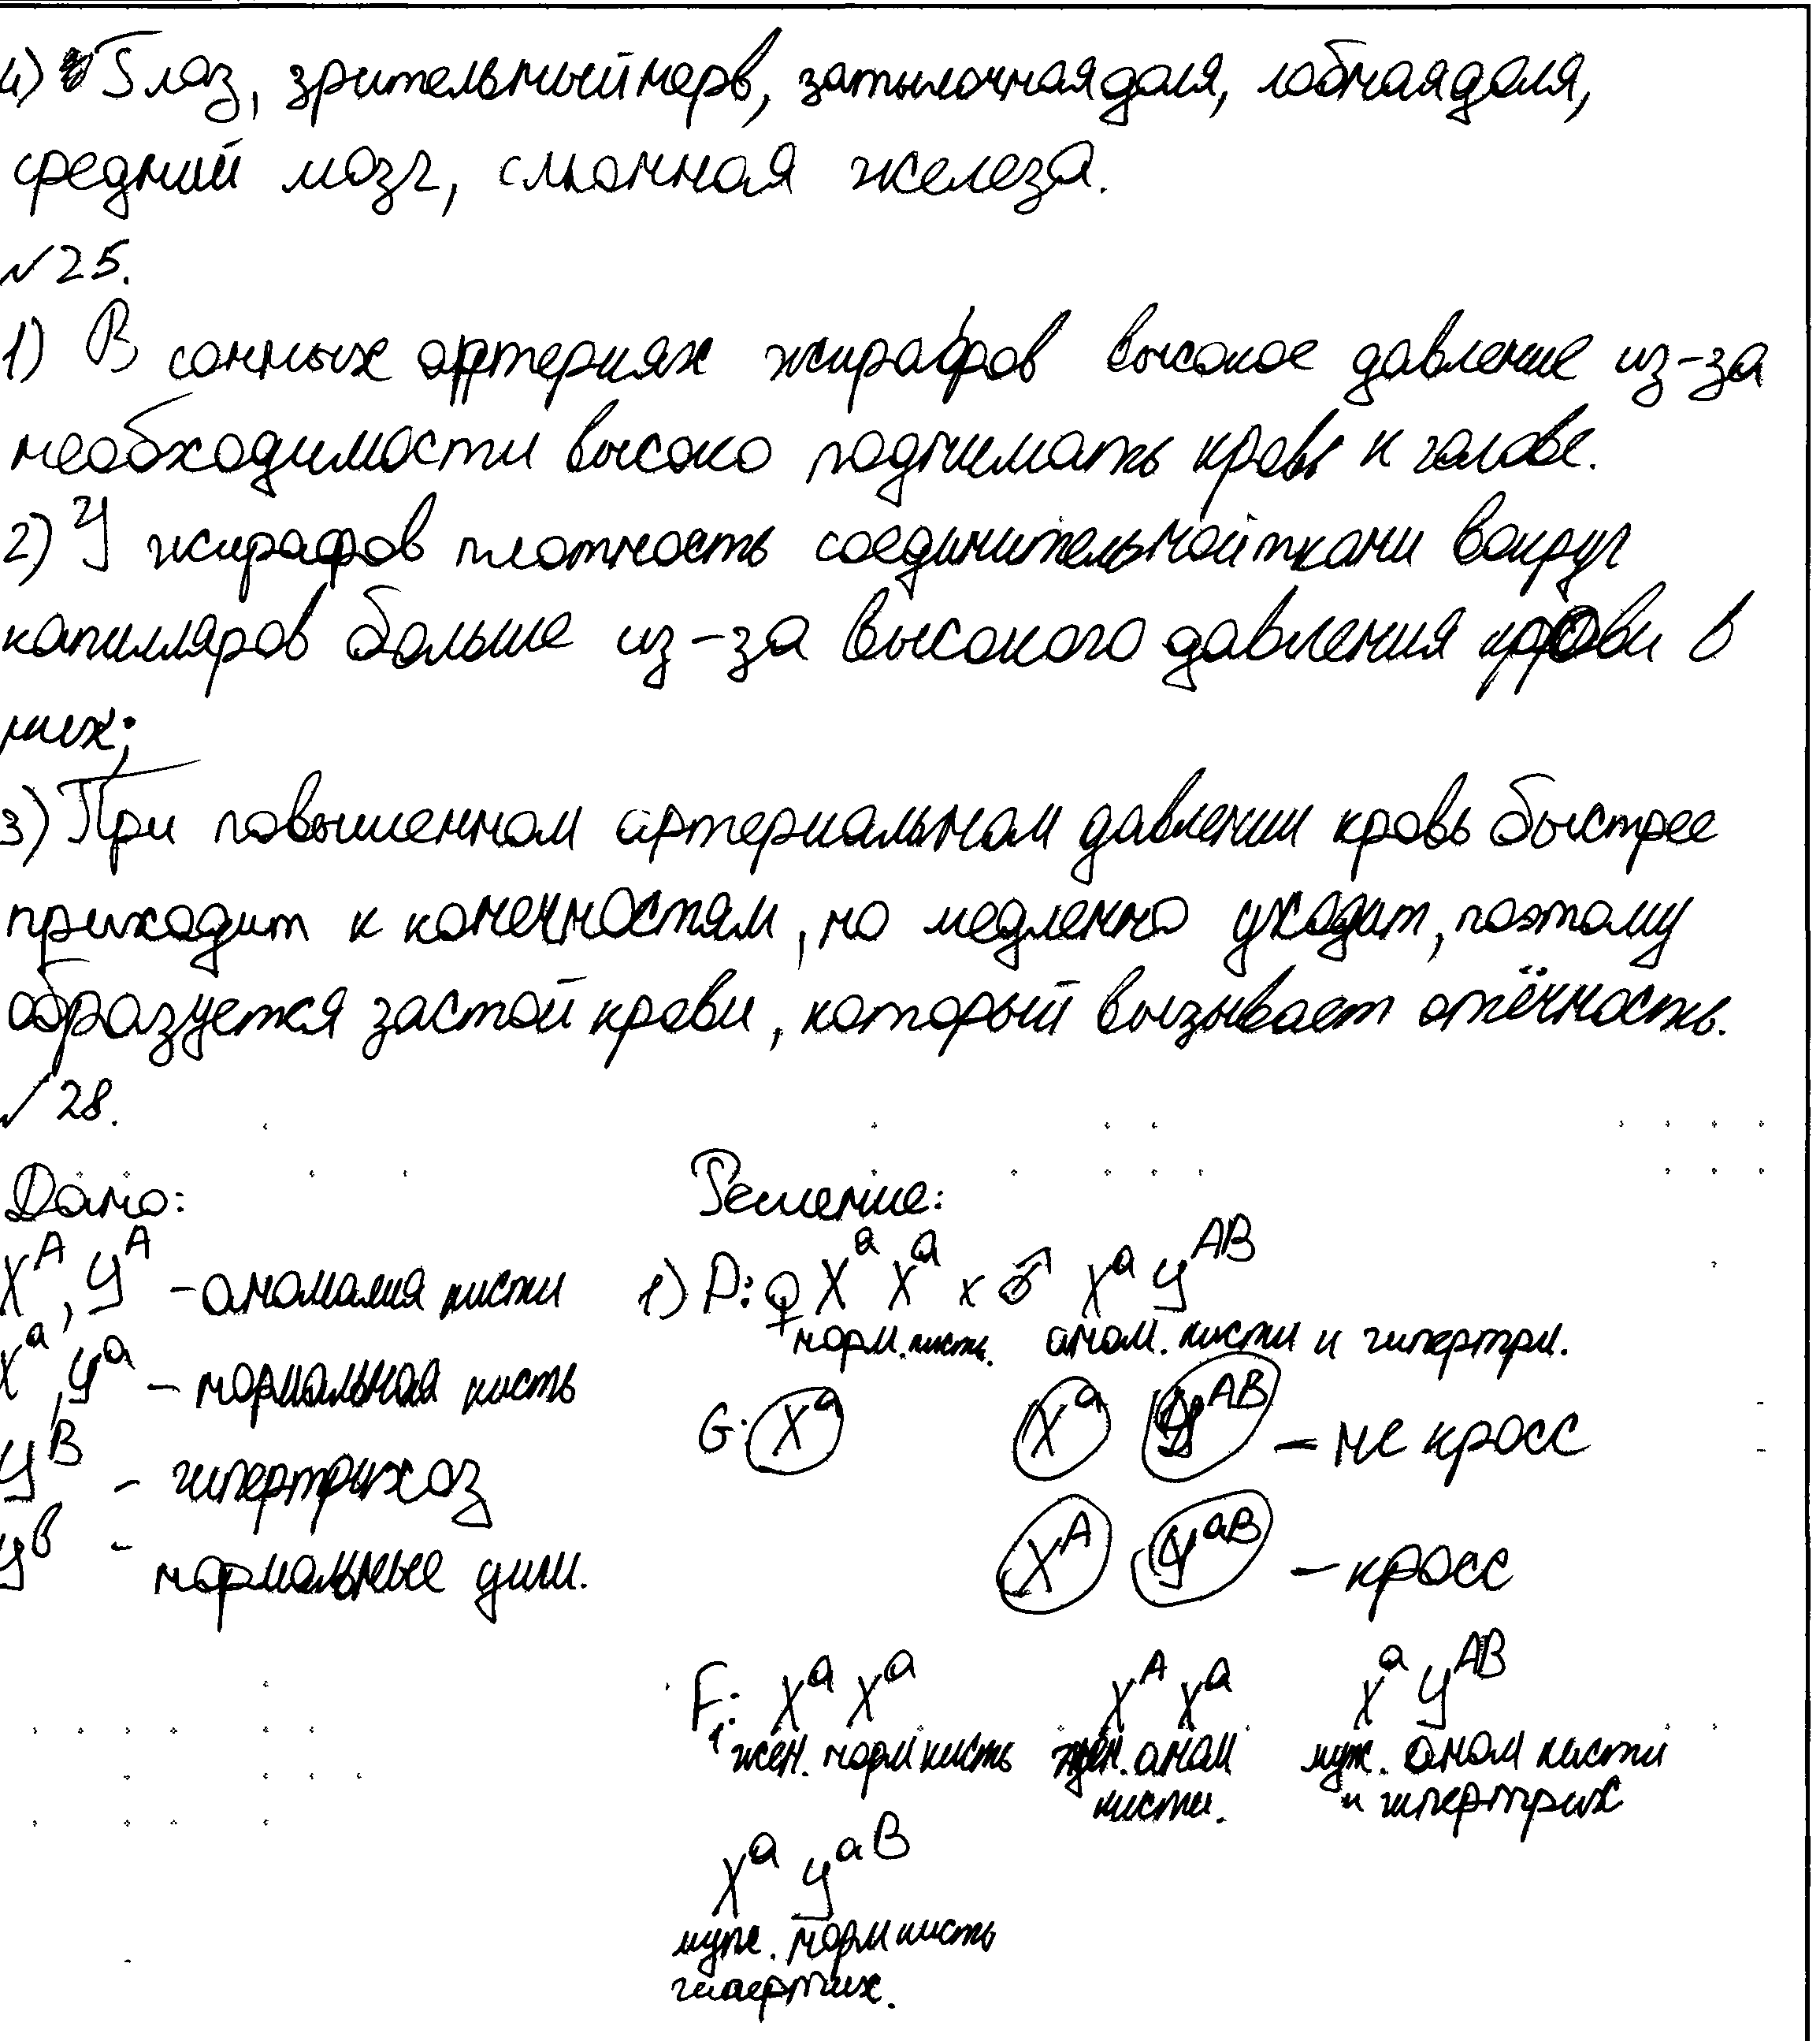 4) Глаз, зрительный нерв, затылочная доля, лобная доля,
средний мозг, слюнная железа.
№25.
1) В сонных артериях жирафов высокое давление из-за
необходимости высоко поднимать кровь к голове.
2) У жирафов плотность соединительной ткани вокруг
капилляров больше из-за высокого давления крови в
них;
3) При повышенном артериальном давлении кровь быстрее
приходит к конечностям, но медленно уходит, поэтому
образуется застой крови, который вызывает отёчность.
№28.
Дано:
X^A, Y^A - аномалия кисти
X^a, Y^a - нормальная кисть
Y^B - гипертрихоз
Y^b - нормальные уши.
Решение:
1) P: ♀ X^a X^a x ♂ X^a Y^AB
норм. кисть. аном. кисти и гипертри.
G: X^a X^a Y^AB - не кросс
X^A Y^aB - кросс
F1: X^a X^a X^A X^a X^a Y^AB
жен. норм кисть жен. аном кисти. муж. аном кисти и гипертрих
X^a Y^aB
муж. норм кисть
гипертих.